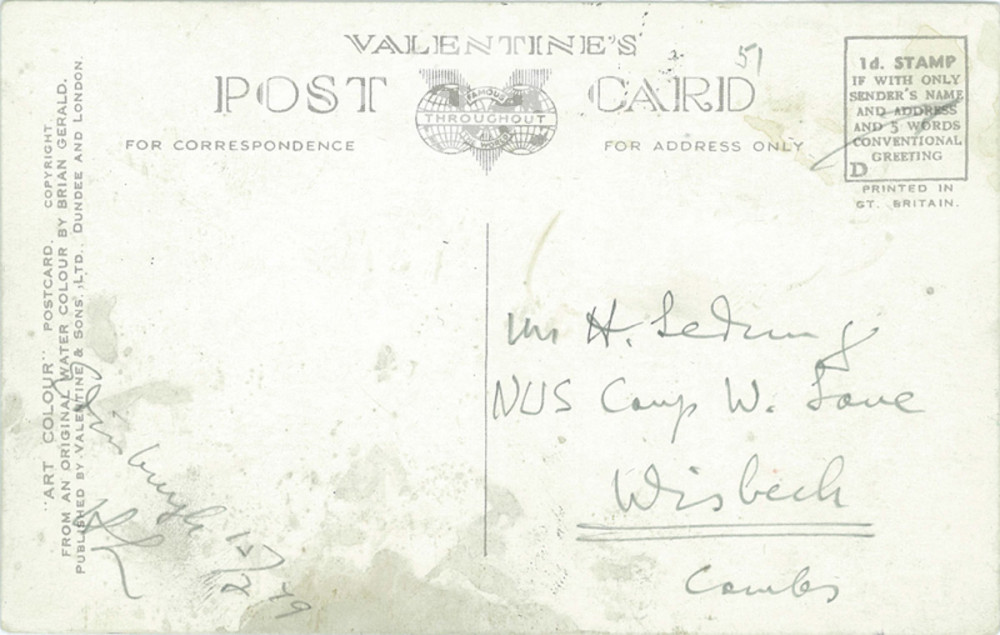 VALENTINE'S
51
POST CARD
FAMOUS
THROUGHOUT
THE WORLD
FOR CORRESPONDENCE
FOR ADDRESS ONLY
1d. STAMP
IF WITH ONLY
SENDER'S NAME
AND ADDRESS
AND 5 WORDS
CONVENTIONAL
GREETING
D
PRINTED IN
GT. BRITAIN.
"ART COLOUR" POSTCARD. COPYRIGHT
FROM AN ORIGINAL WATER COLOUR BY BRIAN GERALD.
PUBLISHED BY VALENTINE & SONS, LTD., DUNDEE AND LONDON.
H.
NUS Camp W.
Wisbech
Cambs